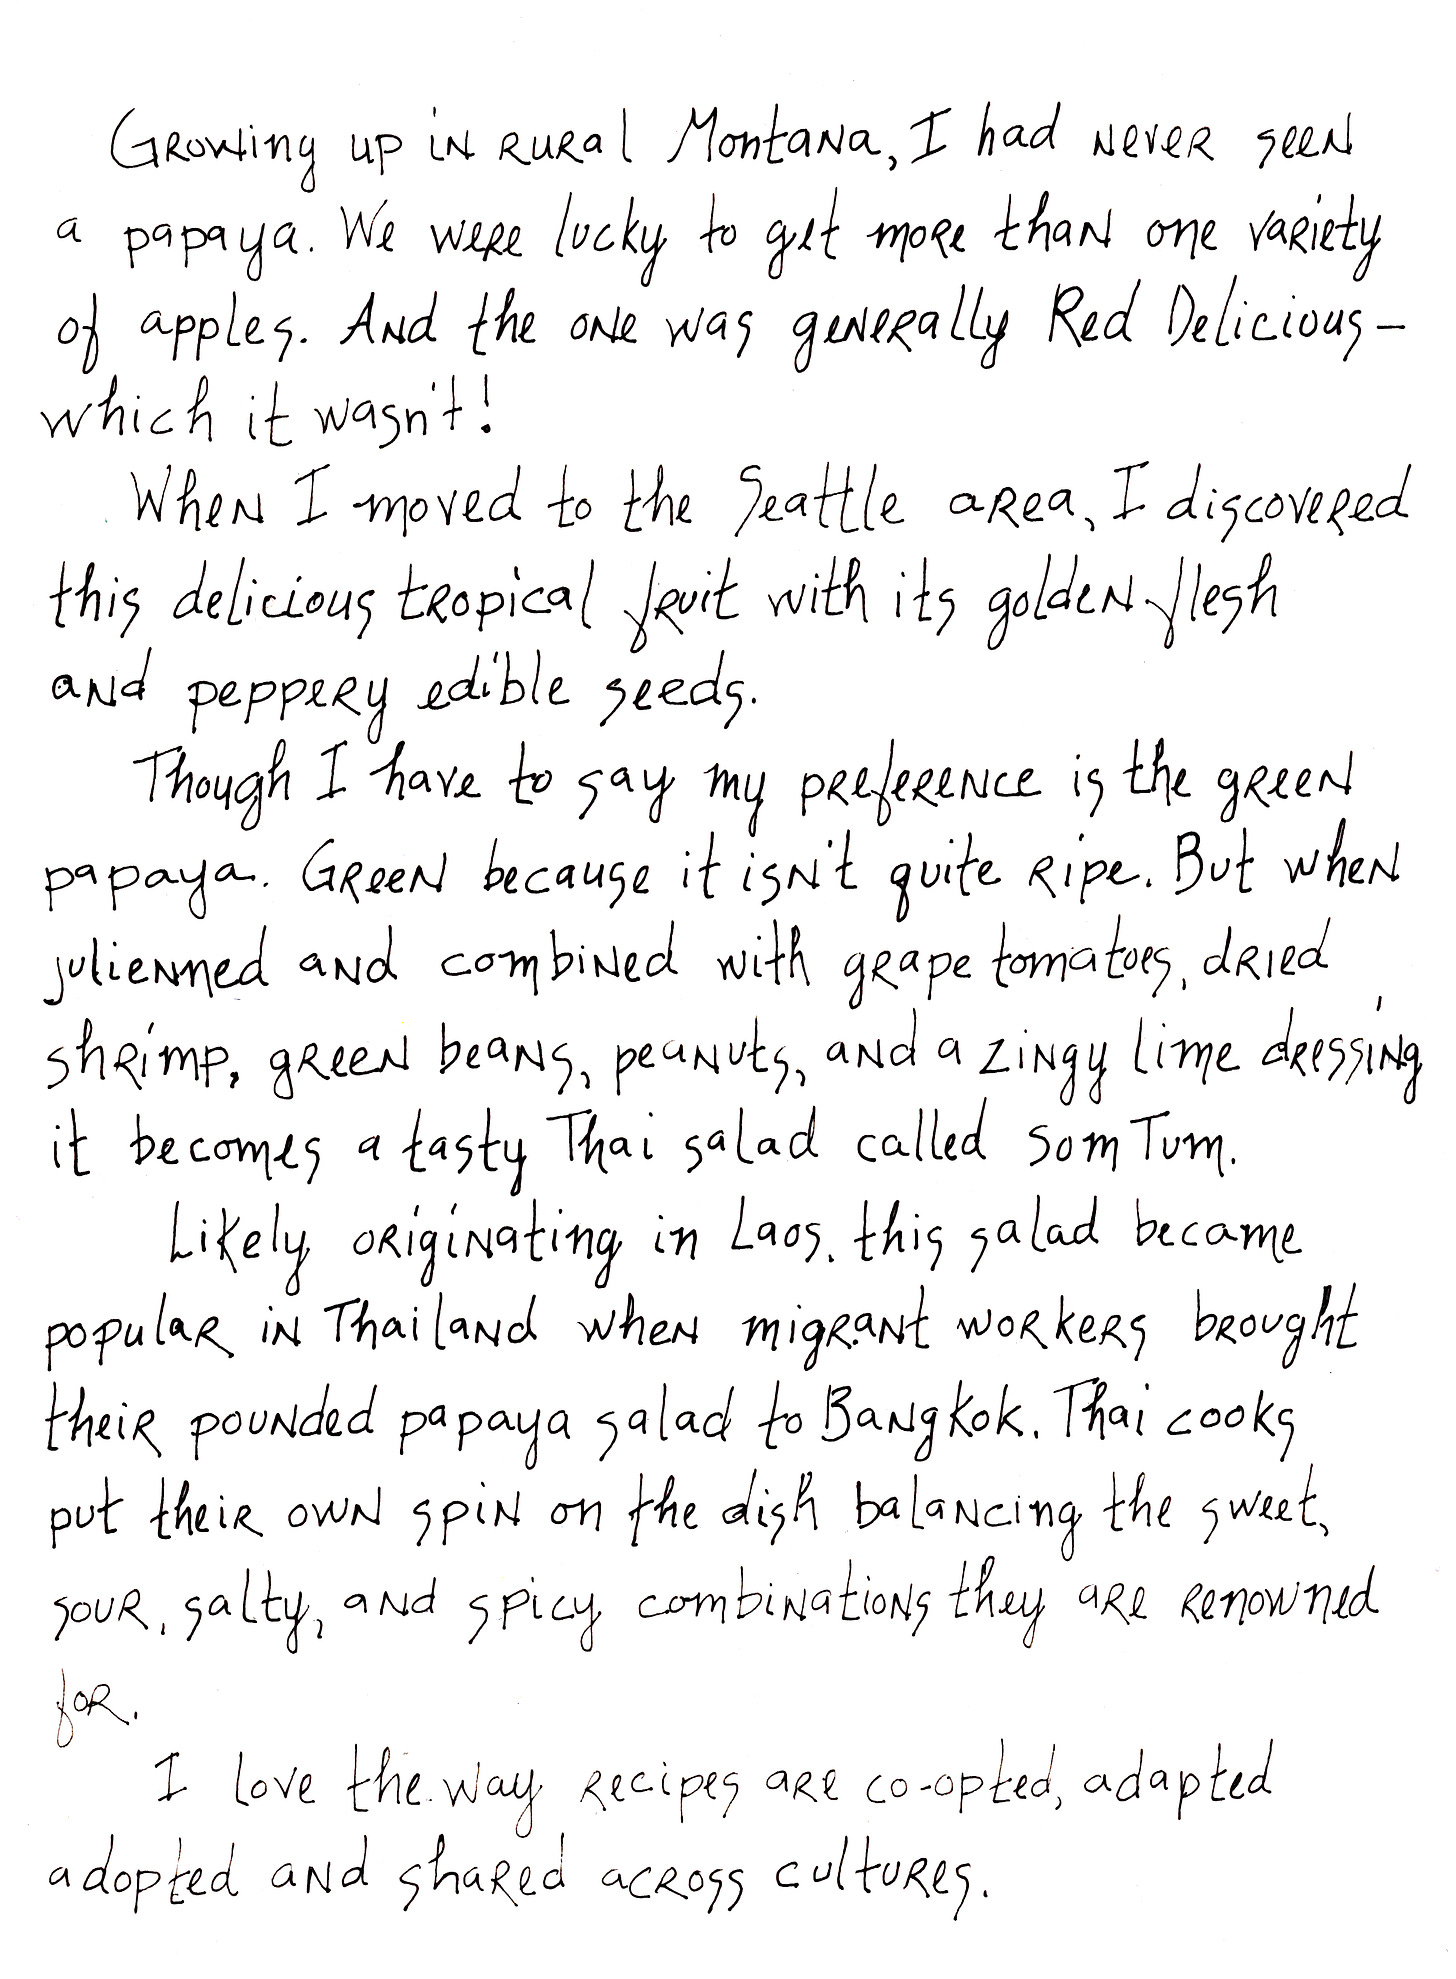 Growing up in rural Montana, I had never seen
a papaya. We were lucky to get more than one variety
of apples. And the one was generally Red Delicious—
which it wasn't!
When I moved to the Seattle area, I discovered
this delicious tropical fruit with its golden flesh
and peppery edible seeds.
Though I have to say my preference is the green
papaya. Green because it isn't quite ripe. But when
julienned and combined with grape tomatoes, dried
shrimp, green beans, peanuts, and a zingy lime dressing
it becomes a tasty Thai salad called Som Tum.
Likely originating in Laos, this salad became
popular in Thailand when migrant workers brought
their pounded papaya salad to Bangkok. Thai cooks
put their own spin on the dish balancing the sweet,
sour, salty, and spicy combinations they are renowned
for.
I love the way recipes are co-opted, adapted
adopted and shared across cultures.